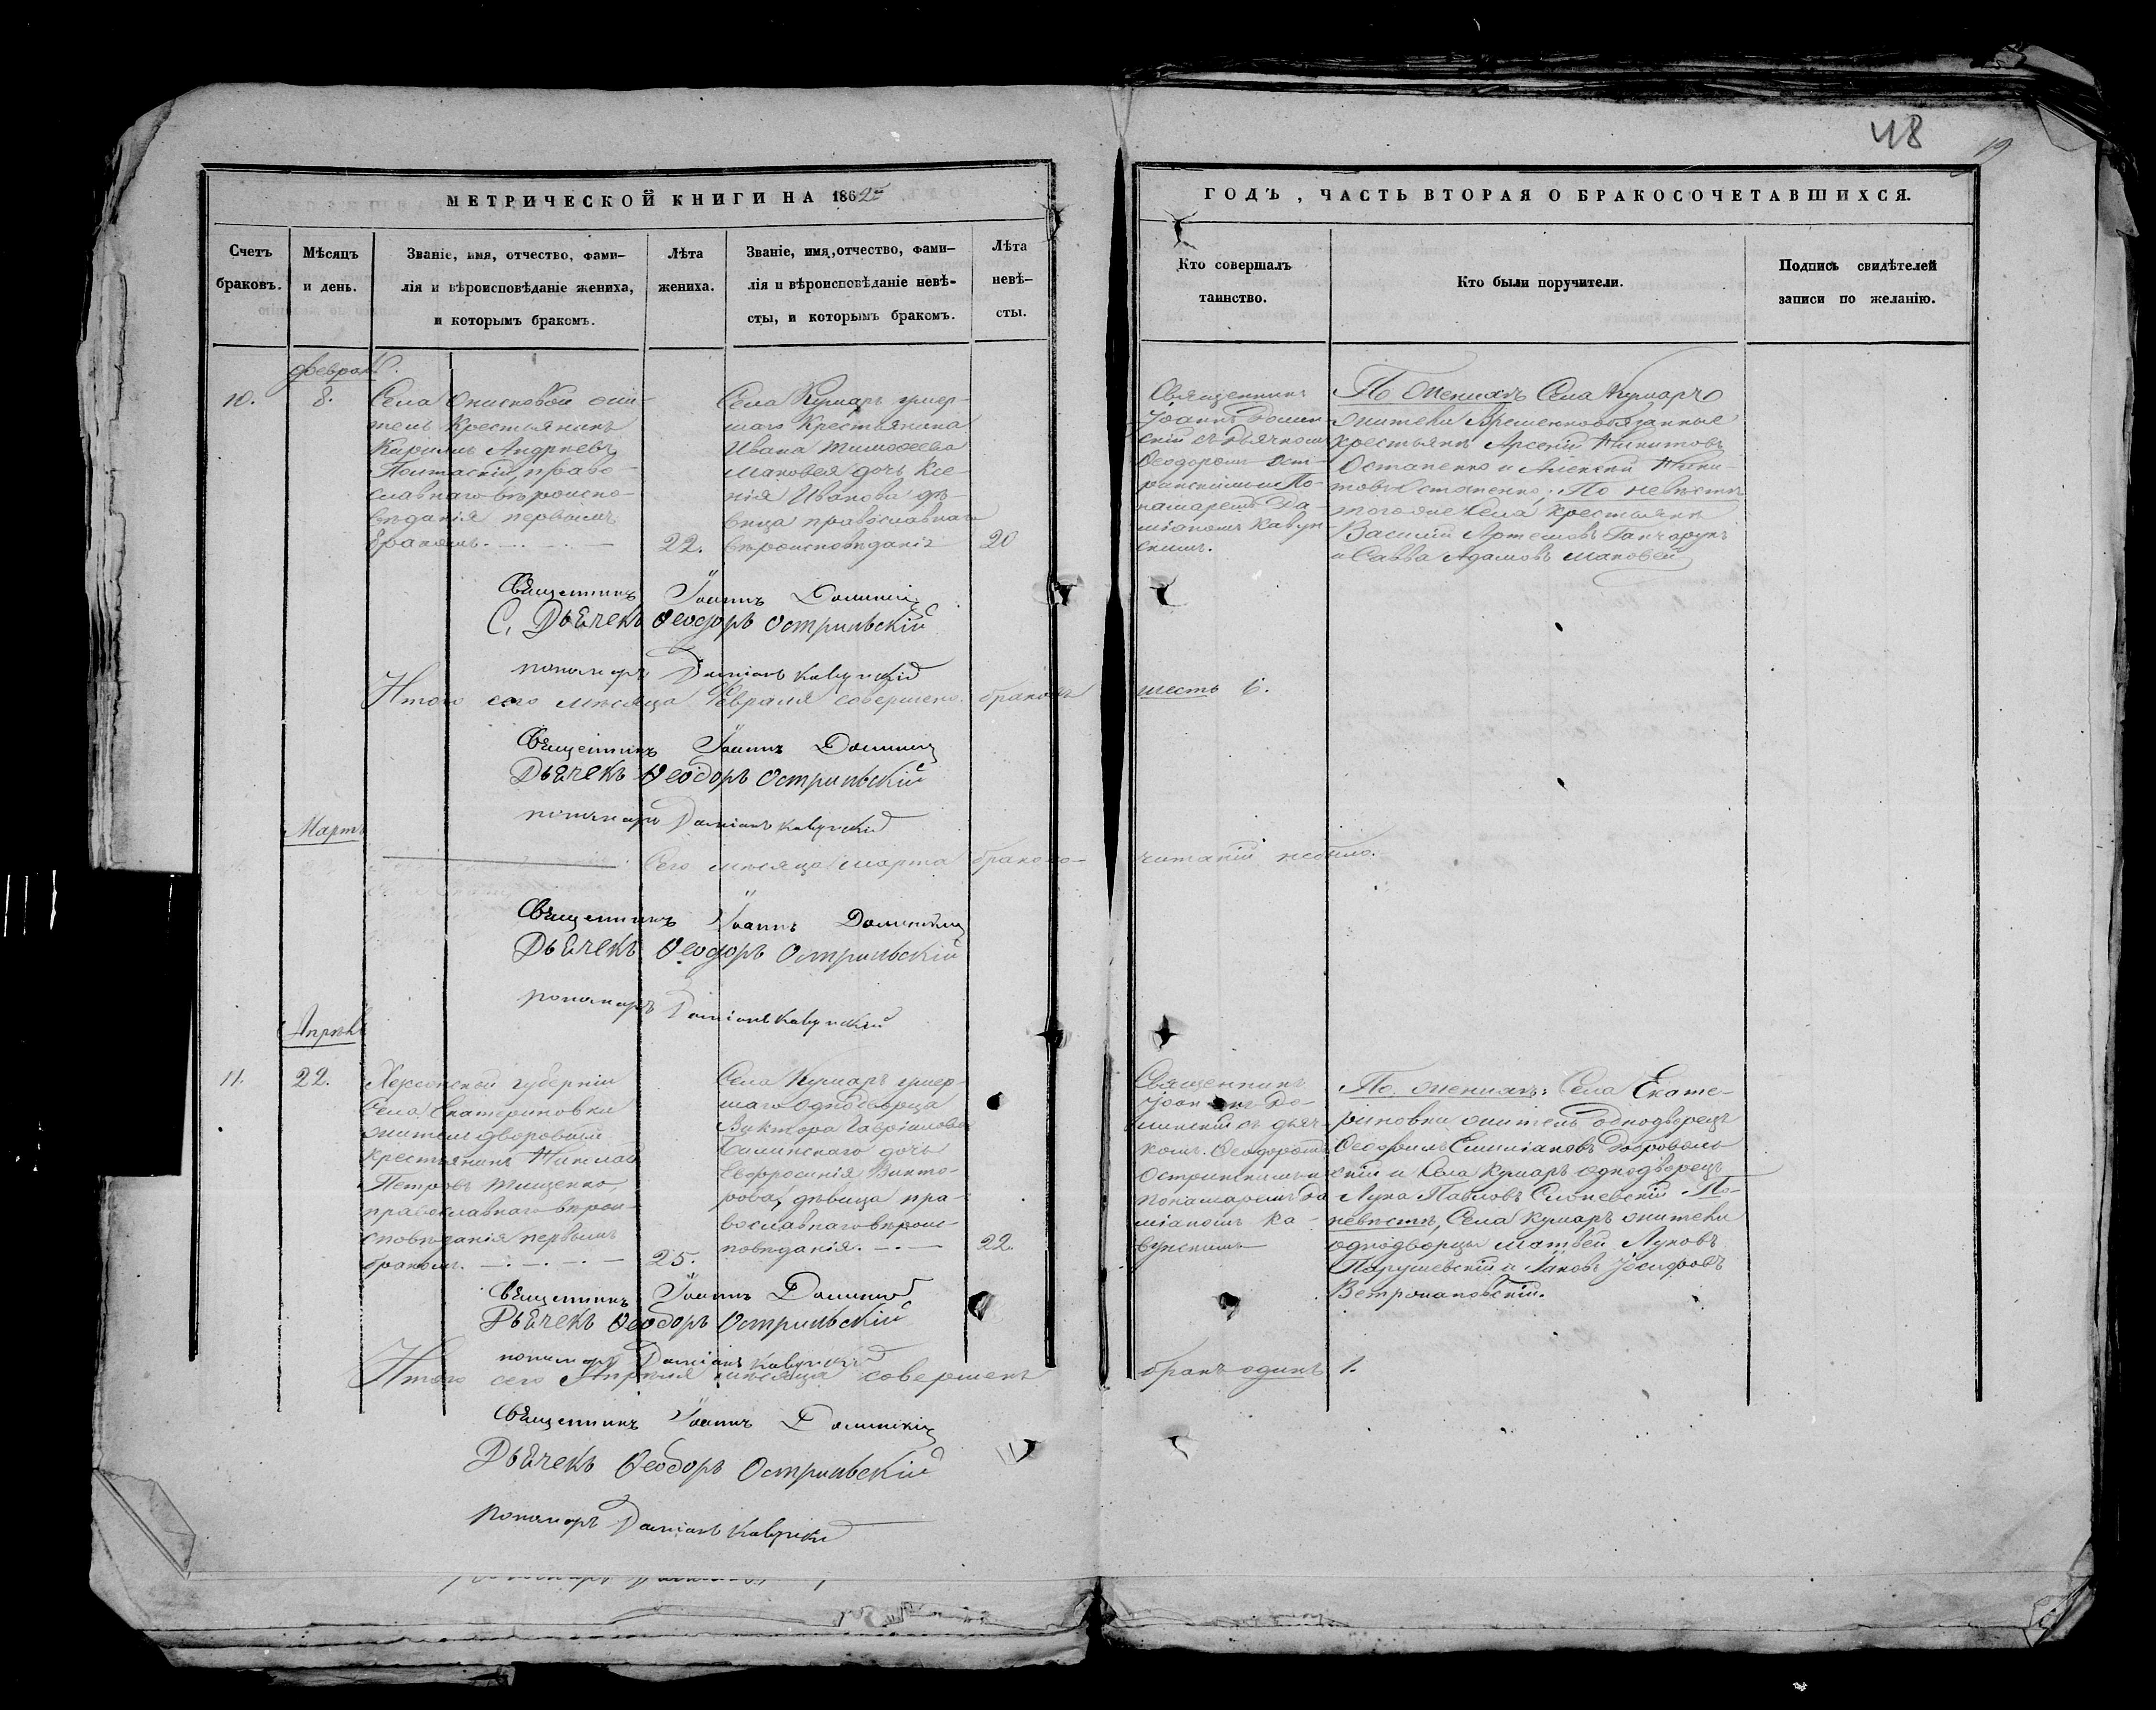 48
19
МЕТРИЧЕСКОЙ КНИГИ НА 1862й
ГОДЪ, ЧАСТЬ ВТОРАЯ О БРАКОСОЧЕТАВШИХСЯ.
Счетъ
браковъ.
Мѣсяцъ
и день.
Званіе, имя, отчество, фами-
лія и вѣроисповѣданіе жениха,
и которымъ бракомъ.
Лѣта
жениха.
Званіе, имя, отчество, фами-
лія и вѣроисповѣданіе невѣ-
сты, и которымъ бракомъ.
Лѣта
невѣ-
сты.
Кто совершалъ
таинство.
Кто были поручители.
Подпись свидѣтелей
записи по желанію.
Февраль.
10.
8.
Села жи-
тель Крестьянинъ
Андреевъ
право-
славнаго вѣроиспо-
вѣданія первымъ
бракомъ.
22.
Села Кумаръ умер-
шаго Крестьянина
Ивана Тимофеева
Маковея дочь Ксе-
нія Иванова дѣ-
вица православнаго
вѣроисповѣданія
20
Священникъ
Іоаннъ Долин-
скій съ дьячкомъ
Феодоромъ Ост-
и По-
намаремъ Да-
міаномъ Кавун-
скимъ.
По женихѣ Села Кумаръ
жители Временнообязанные
крестьяне Арсеній Никитовъ
Остапенко и Алексѣй Ники-
товъ Остапенко; По невѣстѣ
тогоже села крестьяне
Василій Артемовъ Ганчарукъ
и Савва Адамовъ Маковей
Священникъ Іоаннъ Долинскій
С. Дьячекъ Феодоръ Острипьскій
понамарь Даміанъ Кавунскій
Итого сего мѣсяца Февраля совершено браковъ
шесть 6.
Священникъ Іоаннъ Долинскій
Дьячекъ Феодоръ Острипьскій
понамарь Даміанъ Кавунскій
Мартъ
Сего мѣсяца Марта бракосо-
читаній небыло.
Священникъ Іоаннъ Долинскій
Дьячекъ Феодоръ Острипьскій
понамарь Даміанъ Кавунскій
Апрѣль
11.
22.
Херсонской губерніи
Села Екатериновки
житель дворовый
крестьянинъ Николай
Петровъ Тищенко,
православнаго вѣрои-
сповѣданія первымъ
бракомъ.
25.
Села Кумаръ умер-
шаго однодворца
Виктора Гавріилова
Билинскаго дочь
Евфросинія Викто-
рова, дѣвица пра-
вославнаго вѣроис-
повѣданія.
22.
Священникъ
Іоаннъ До-
линскій съ дьяч-
комъ Феодоромъ
и
понамаремъ Да-
міаномъ Ка-
вунскимъ
По женихѣ: Села Екате-
риновки житель однодворецъ
Феофилъ Емиліановъ Доброволь-
скій и Села Кумаръ однодворецъ
Лука Павловъ По
невѣстѣ, Села Кумаръ жители
однодворцы Матвей Луковъ
и Іаковъ Іосифовъ
Священникъ Іоаннъ Долинскій
Дьячекъ Феодоръ Острипьскій
понамарь Даміанъ Кавунскій
Итого сего Апрѣля мѣсяца совершенъ
бракъ одинъ 1.
Священникъ Іоаннъ Долинскій
Дьячекъ Феодоръ Острипьскій
понамарь Даміанъ Кавунскій